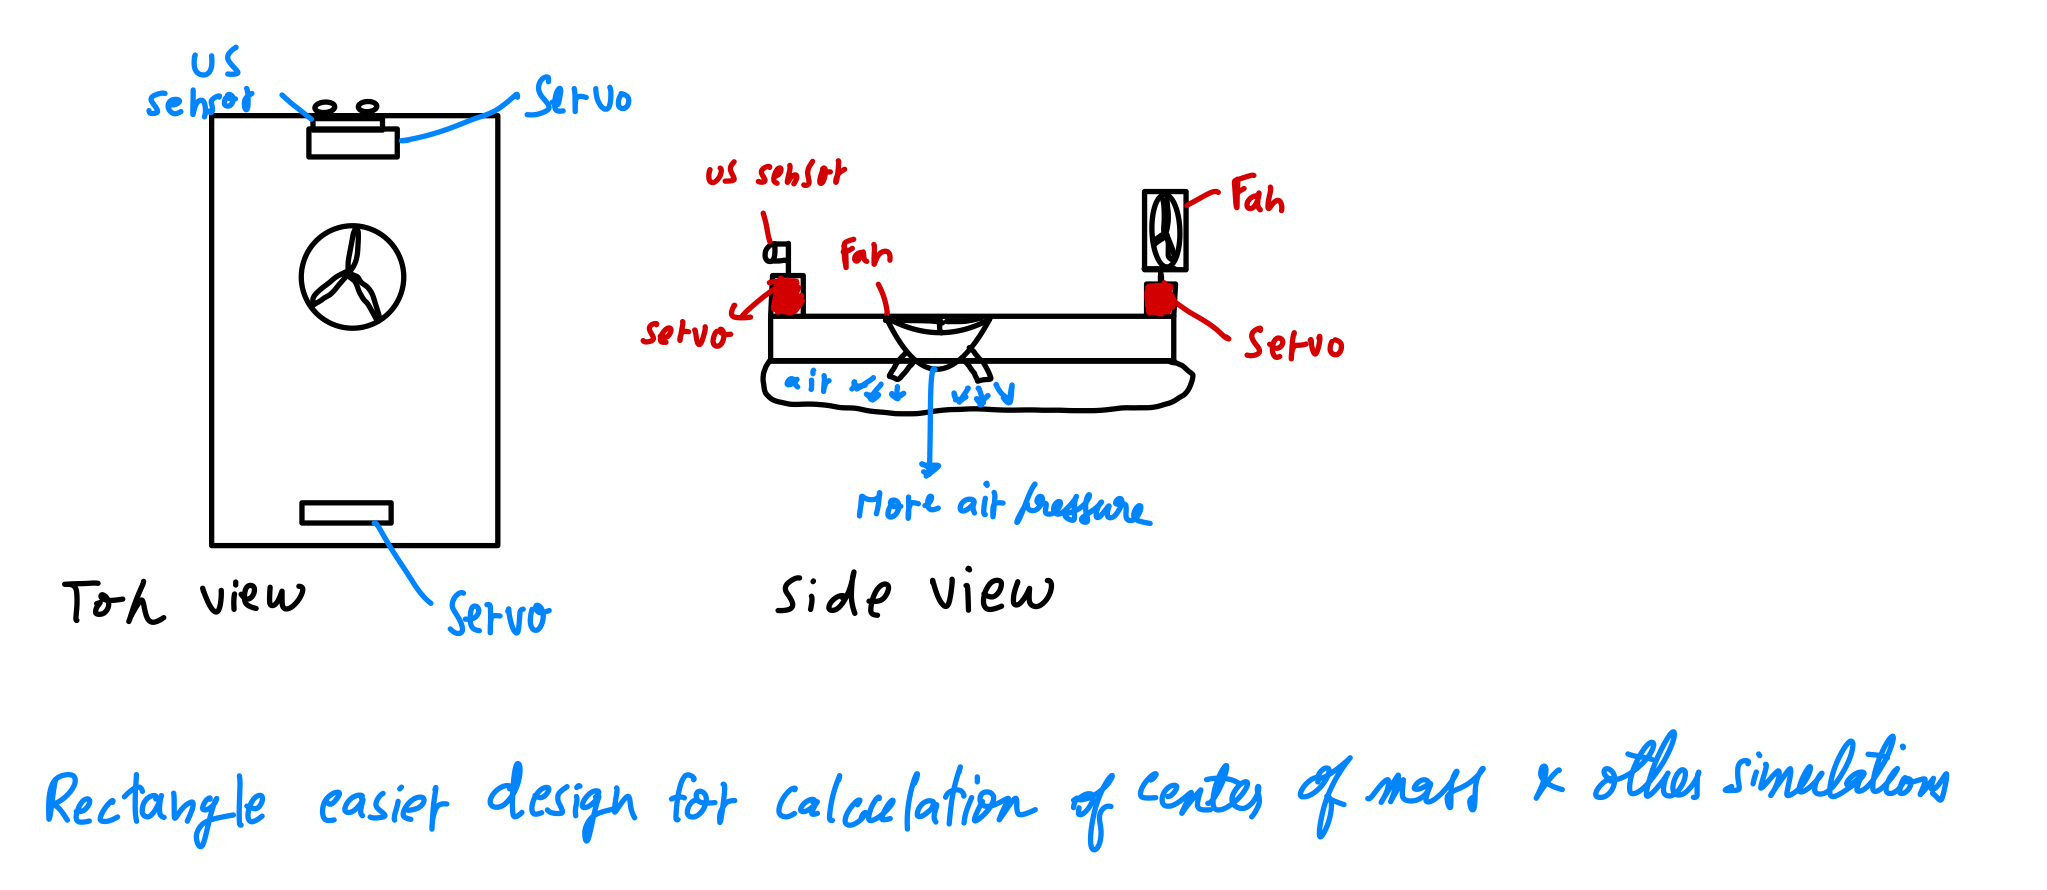 US
sensor
Servo
Servo
Top view
us sensor
Fan
servo
Fan
Servo
air
More air pressure
Side view
Rectangle easier design for calculation of center of mass & other simulations